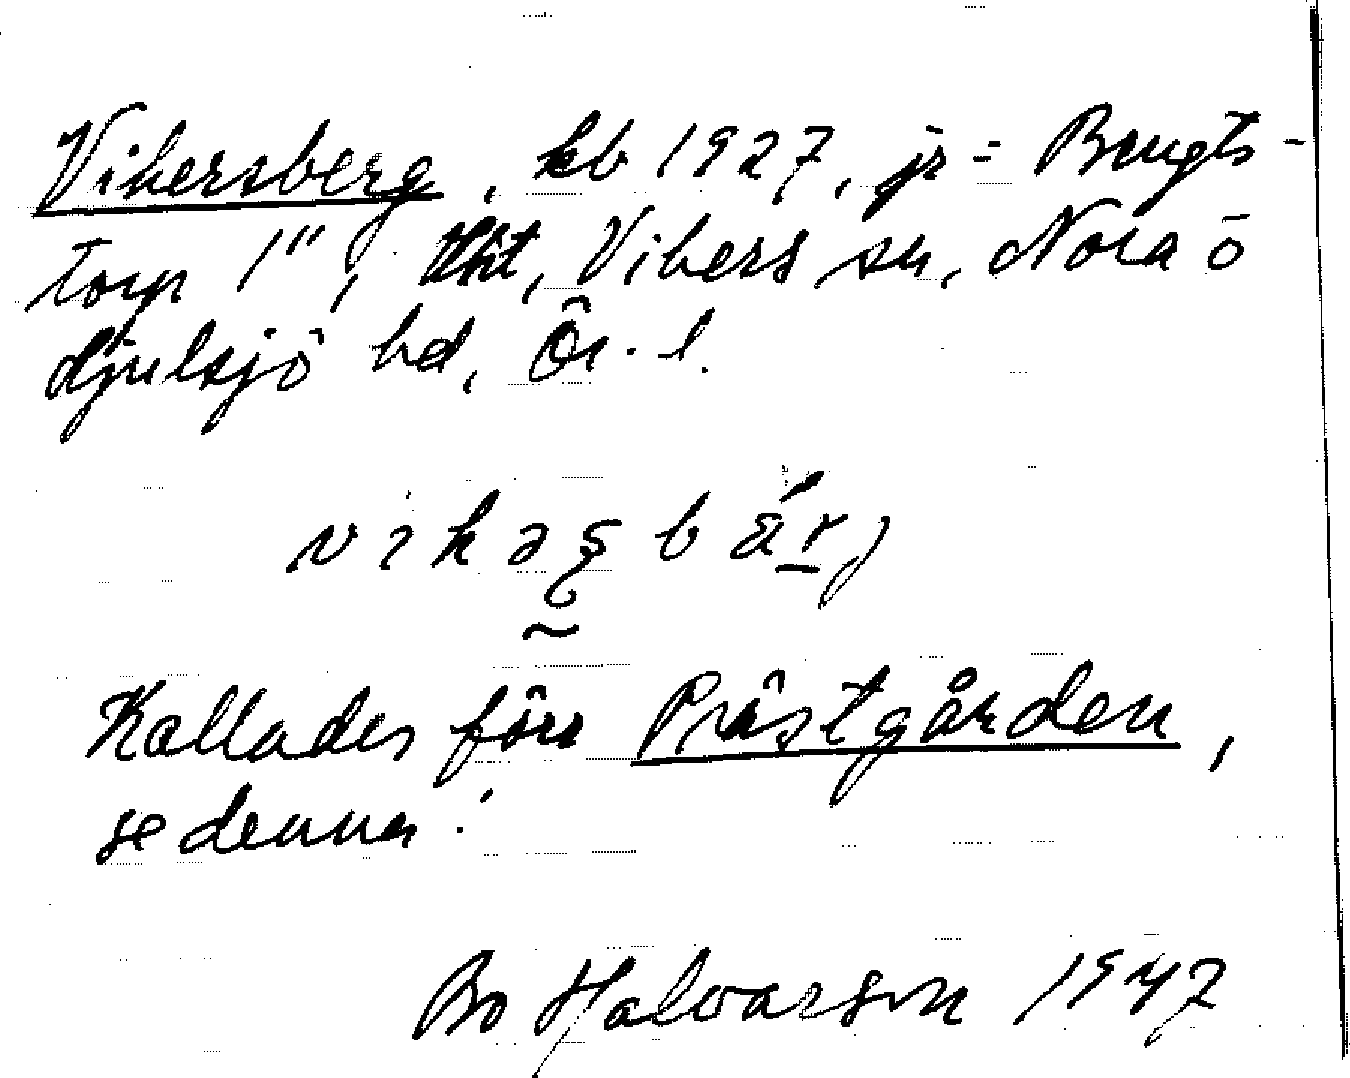 Vikersberg, kb 1927, jr = Bengts-
torp 1", Vikers sn, Nora o
Hjulsjö hd, Ör. l.
vikəʂbä́rj
Kallades förr Prästgården,
se denna!
Bo Halvarson 1947